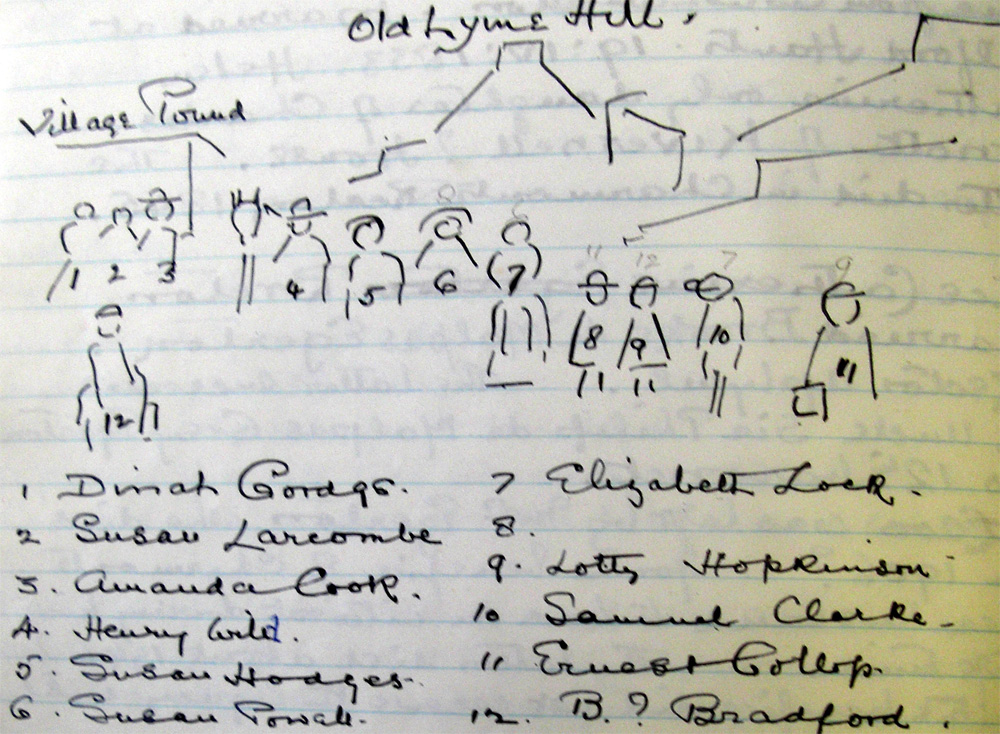 Old Lyme Hill.
Village Pound
11 12 7 9
1 2 3 4 5 6 7
8 9 10 11
12
1 Dinah
2 Susan Larcombe
3. Amanda Cook.
4. Henry Wild.
5. Susan Hodges.
6. Susan Powell.
7 Elizabeth Lock.
8.
9. Lotty Hopkinson
10 Samuel Clarke.
11 Ernest Gollop.
12. B. ? Bradford.